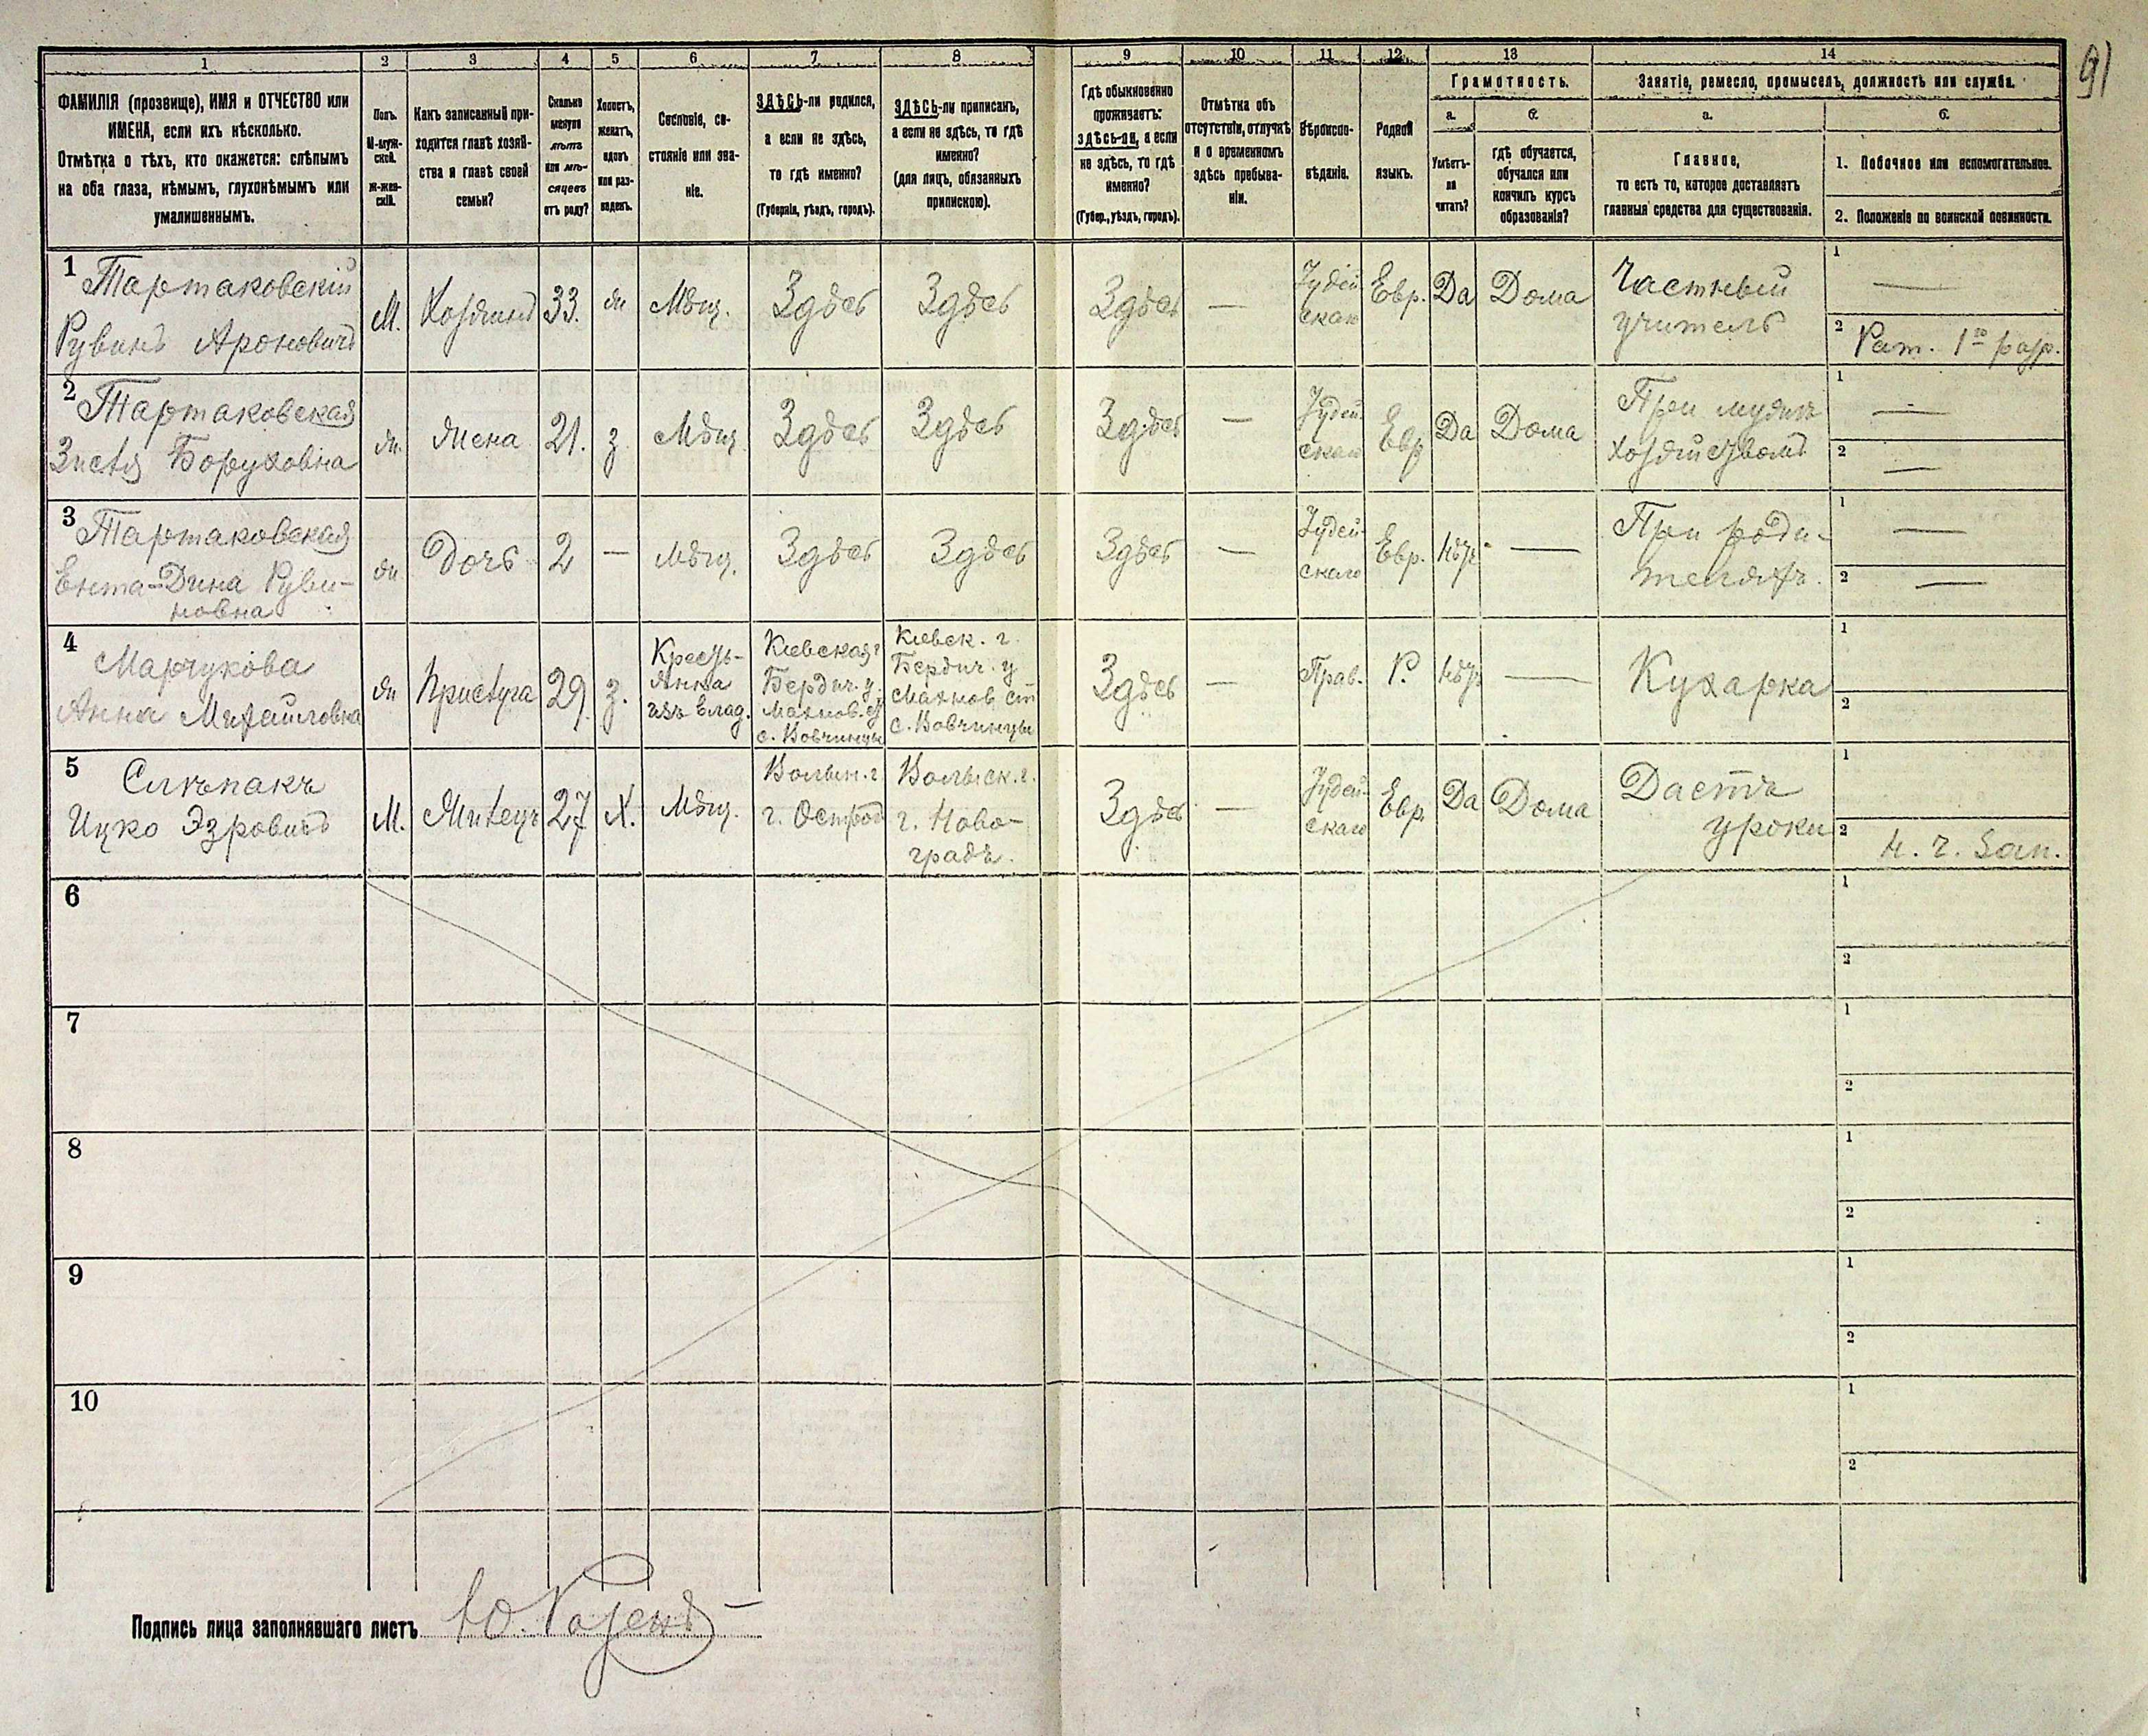 91
1 2 3 4 5 6 7 8 9 10 11 12 13 14
ФАМИЛІЯ (прозвище), ИМЯ и ОТЧЕСТВО или
ИМЕНА, если ихъ нѣсколько.
Отмѣтка о тѣхъ, кто окажется: слѣпымъ
на оба глаза, нѣмымъ, глухонѣмымъ или
умалишеннымъ.
Полъ.
М-муж-
ской.
Ж-жен-
скій.
Какъ записанный при-
ходится главѣ хозяй-
ства и главѣ своей
семьи?
Сколько
минуло
лѣтъ
или мѣ-
сяцевъ
отъ роду?
Холостъ,
женатъ,
вдовъ
или раз-
веденъ.
Сословіе, со-
стояніе или зва-
ніе.
ЗДѢСЬ-ли родился,
а если не здѣсь,
то гдѣ именно?
(Губернія, уѣздъ, городъ).
ЗДѢСЬ-ли приписанъ,
а если не здѣсь, то гдѣ
именно?
(для лицъ, обязанныхъ
припискою).
Гдѣ обыкновенно
проживаетъ:
здѣсь-ли, а если
не здѣсь, то гдѣ
именно?
(Губер., уѣздъ, городъ).
Отмѣтка объ
отсутствіи, отлучкѣ
и о временномъ
здѣсь пребыва-
ніи.
Вѣроиспо-
вѣданіе.
Родной
языкъ.
Грамотность.
а.
Умѣетъ-
ли
читать?
б.
гдѣ обучается,
обучался или
кончилъ курсъ
образованія?
Занятіе, ремесло, промыселъ, должность или служба.
а.
Главное,
то есть то, которое доставляетъ
главныя средства для существованія.
б.
1. Побочное или вспомогательное.
2. Положеніе по воинской повинности.
1 Тартаковскій
Рувинъ Ароновичъ
М. Хозяинъ 33. ж Мѣщ. Здѣсь Здѣсь Здѣсь —
Іудей
скаго
Евр. Да Дома
Частный
учитель
1 —
2 Рат. 1го разр.
2 Тартаковская
Зисля Боруховна
ж. Жена 21. з Мѣщ. Здѣсь Здѣсь Здѣсь —
Іудей-
скаго
Евр Да Дома
При мужѣ
хозяйствомъ
1 —
2 —
3 Тартаковская
Ента-Дина Руви-
новна
ж Дочь 2 — Мѣщ. Здѣсь Здѣсь Здѣсь —
Іудей-
скаго
Евр. Нѣтъ —
При роди-
теляхъ.
1 —
2 —
4
Марчукова
Анна Михайловна
ж Прислуга 29. з.
Кресть-
янка
изъ влад.
Кіевская г
Бердич. у.
Махнов. ст
с. Вовчинцы
Кіевск. г.
Бердич. у
Махнов. ст
с. Вовчинцы
Здѣсь — Прав. Р. Нѣтъ — Кухарка
1
2
5 Слѣпакъ
Ицко Эзровичъ
М. Жилецъ 27 Х. Мѣщ.
Волын. г.
г. Острогъ
Волынск. г.
г. Ново-
градъ.
Здѣсь —
Іудей-
скаго
Евр. Да Дома
Даетъ
уроки
1
2 Н. ч. Зап.
6 1
2
7 1
2
8 1
2
9 1
2
10 1
2
Подпись лица заполнявшаго листъ Ю. Розенъ